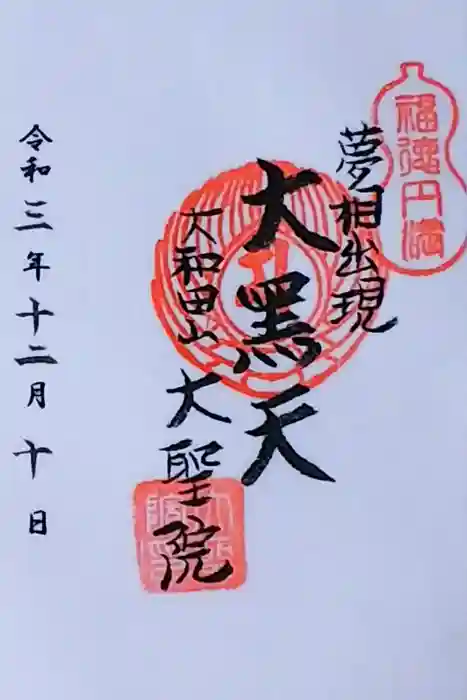 福徳円満
夢相出現
大黑天
大和田山
大聖院
令和三年十二月十日